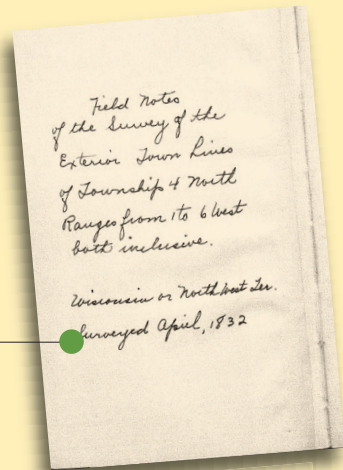 Field Notes
of the Survey of the
Exterior Town Lines
of Township 4 North
Ranges from 1 to 6 West
both inclusive.
Wisconsin or North West Ter.
Surveyed April, 1832